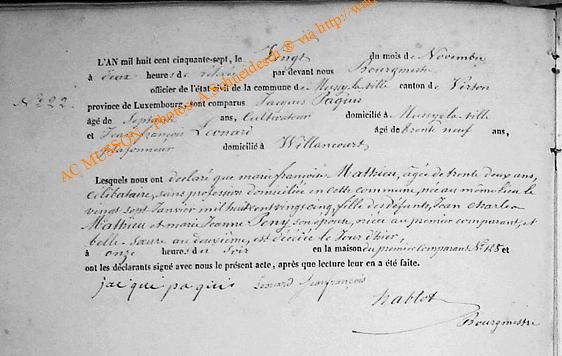 L'AN mil huit cent cinquante-sept, le Vingt du mois de Novembre
à deux heures de relevée par devant nous Bourgmestre
officier de l'état civil de la commune de Mussy-la-ville canton de Virton
N° 22. province de Luxembourg, sont comparus Jacques Paquis
âgé de Septante ans, Cultivateur domicilié à Mussy-la-ville
et Jean françois Léonard âgé de trente neuf ans,
Plafonneur domicilié à Willancourt
Lesquels nous ont déclaré que marie françoise Mathieu, âgée de trente deux ans,
célibataire, sans profession domiciliée en cette commune, née au même lieu le
vingt sept Janvier mil huit cent vingt cinq, fille des défunts, Jean charles
Mathieu et marie Jeanne Peny son épouse, nièce au premier comparant, et
belle-Soeur au deuxième, est décédée le Jour d'hier,
à onze heures du Soir en la maison du premier comparant N° 128 et
ont les déclarants signé avec nous le présent acte, après que lecture leur en a été faite.
jacque paquis Léonard jeanfrançois
hablot
Bourgmestre
AC MUSSON - photos A.Schneidesch © via http://www